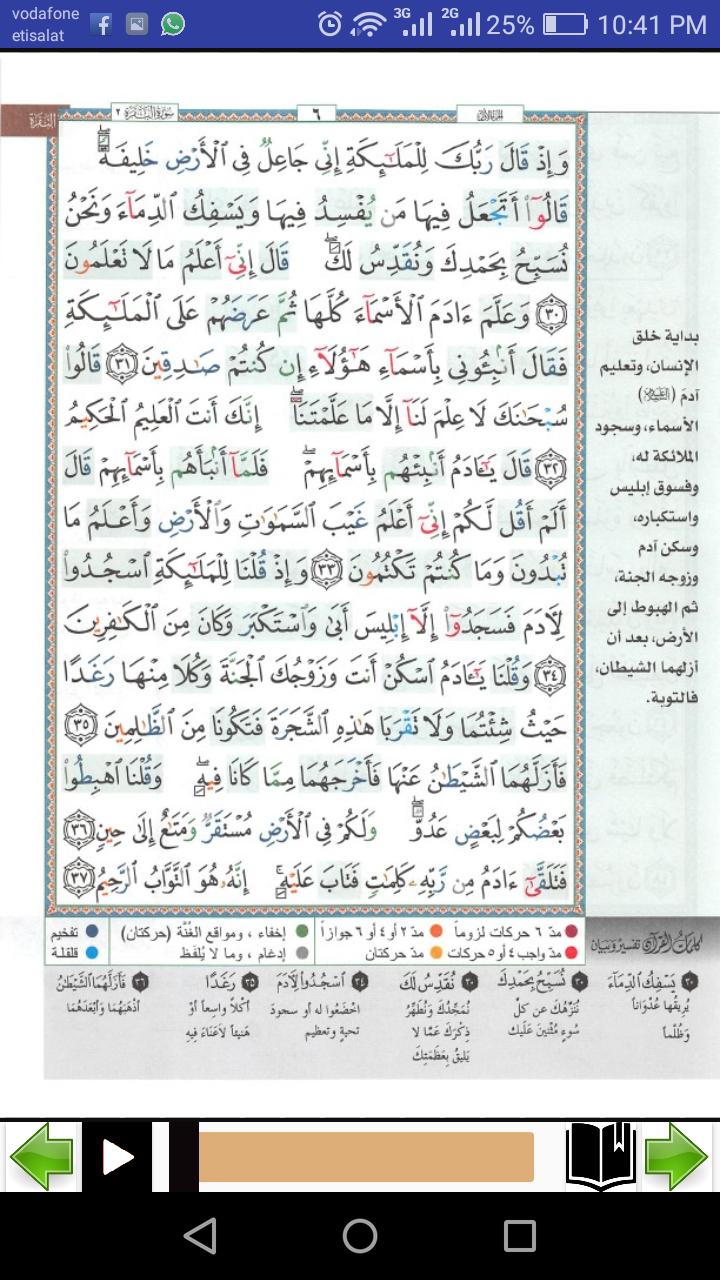 vodafone
etisalat
3G
2G
25%
10:41 PM
البقرة
سورة البقرة ٢
٦
الجزء الأول
وَإِذْ قَالَ رَبُّكَ لِلْمَلَٰٓئِكَةِ إِنِّى جَاعِلٌ فِى ٱلْأَرْضِ خَلِيفَةً
قَالُوٓا۟ أَتَجْعَلُ فِيهَا مَن يُفْسِدُ فِيهَا وَيَسْفِكُ ٱلدِّمَآءَ وَنَحْنُ
نُسَبِّحُ بِحَمْدِكَ وَنُقَدِّسُ لَكَ قَالَ إِنِّىٓ أَعْلَمُ مَا لَا تَعْلَمُونَ
﴿٣٠﴾ وَعَلَّمَ ءَادَمَ ٱلْأَسْمَآءَ كُلَّهَا ثُمَّ عَرَضَهُمْ عَلَى ٱلْمَلَٰٓئِكَةِ
فَقَالَ أَنۢبِـُٔونِى بِأَسْمَآءِ هَٰٓؤُلَآءِ إِن كُنتُمْ صَٰدِقِينَ ﴿٣١﴾ قَالُوا۟
سُبْحَٰنَكَ لَا عِلْمَ لَنَآ إِلَّا مَا عَلَّمْتَنَآ إِنَّكَ أَنتَ ٱلْعَلِيمُ ٱلْحَكِيمُ
﴿٣٢﴾ قَالَ يَٰٓـَٔادَمُ أَنۢبِئْهُم بِأَسْمَآئِهِمْ فَلَمَّآ أَنۢبَأَهُم بِأَسْمَآئِهِمْ قَالَ
أَلَمْ أَقُل لَّكُمْ إِنِّىٓ أَعْلَمُ غَيْبَ ٱلسَّمَٰوَٰتِ وَٱلْأَرْضِ وَأَعْلَمُ مَا
تُبْدُونَ وَمَا كُنتُمْ تَكْتُمُونَ ﴿٣٣﴾ وَإِذْ قُلْنَا لِلْمَلَٰٓئِكَةِ ٱسْجُدُوا۟
لِـَٔادَمَ فَسَجَدُوٓا۟ إِلَّآ إِبْلِيسَ أَبَىٰ وَٱسْتَكْبَرَ وَكَانَ مِنَ ٱلْكَٰفِرِينَ
﴿٣٤﴾ وَقُلْنَا يَٰٓـَٔادَمُ ٱسْكُنْ أَنتَ وَزَوْجُكَ ٱلْجَنَّةَ وَكُلَا مِنْهَا رَغَدًا
حَيْثُ شِئْتُمَا وَلَا تَقْرَبَا هَٰذِهِ ٱلشَّجَرَةَ فَتَكُونَا مِنَ ٱلظَّٰلِمِينَ ﴿٣٥﴾
فَأَزَلَّهُمَا ٱلشَّيْطَٰنُ عَنْهَا فَأَخْرَجَهُمَا مِمَّا كَانَا فِيهِ وَقُلْنَا ٱهْبِطُوا۟
بَعْضُكُمْ لِبَعْضٍ عَدُوٌّ وَلَكُمْ فِى ٱلْأَرْضِ مُسْتَقَرٌّ وَمَتَٰعٌ إِلَىٰ حِينٍ ﴿٣٦﴾
فَتَلَقَّىٰٓ ءَادَمُ مِن رَّبِّهِۦ كَلِمَٰتٍ فَتَابَ عَلَيْهِ إِنَّهُۥ هُوَ ٱلتَّوَّابُ ٱلرَّحِيمُ ﴿٣٧﴾
بداية خلق
الإنسان، وتعليم
آدمَ (عليه السلام)
الأسماء، وسجود
الملائكة له،
وفسوق إبليس
واستكباره،
وسكن آدم
وزوجه الجنة،
ثم الهبوط إلى
الأرض، بعد أن
أزلهما الشيطان،
فالتوبة.
مدّ ٦ حركات لزوماً
مدّ ٢ أو ٤ أو ٦ جوازاً
إخفاء ، ومواقع الغُنَّة (حركتان)
تفخيم
مدّ واجب ٤ أو ٥ حركات
مدّ حركتان
إدغام ، وما لا يُلفَظ
قلقلة
كلمات القرآن تفسير وبيان
٣٠ يَسْفِكُ الدِّمَاءَ
يُرِيقُها عُدْوَاناً
وَظُلْماً
٣٠ نُسَبِّحُ بِحَمْدِكَ
نُنَزِّهُكَ عن كلّ
سُوءٍ مُثْنِينَ عَلَيك
٣٠ نُقَدِّسُ لَكَ
نُمَجِّدُكَ وَنُطَهِّرُ
ذِكْرَكَ عَمَّا لا
يَلِيقُ بِعَظَمَتِكَ
٣٤ اسْجُدُوا لِآدَمَ
اخْضَعُوا له أو سجودَ
تحيةٍ وتعظيم
٣٥ رَغَدًا
أكْلاً واسِعاً أوْ
هَنِيئاً لاَعَنَاءَ فِيهِ
٣٦ فَأَزَلَّهُمَا الشَّيْطَانُ
أذْهَبَهُمَا وَأبْعَدَهُمَا